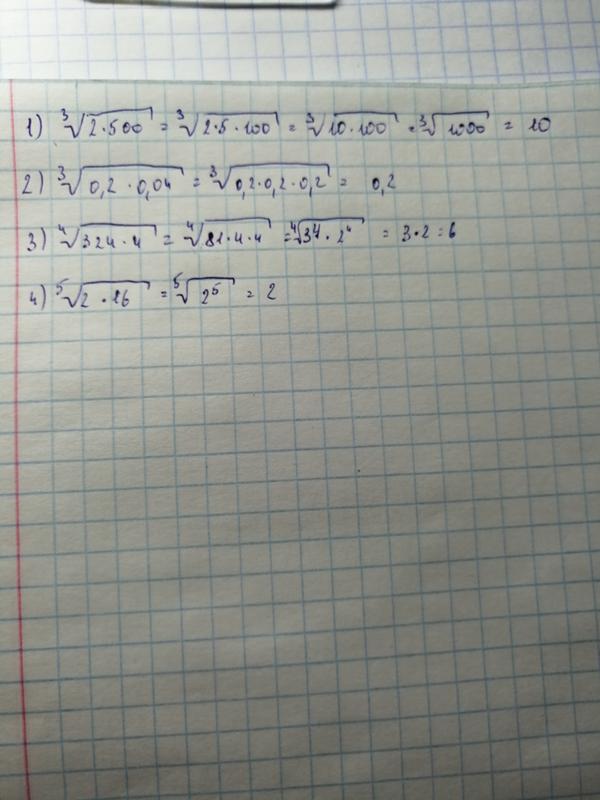 1) ∛(2·500) = ∛(2·5·100) = ∛(10·100) = ∛1000 = 10
2) ∛(0,2·0,04) = ∛(0,2·0,2·0,2) = 0,2
3) ∜(324·4) = ∜(81·4·4) = ∜(3⁴·2⁴) = 3·2=6
4) ⁵√(2·16) = ⁵√(2⁵) = 2